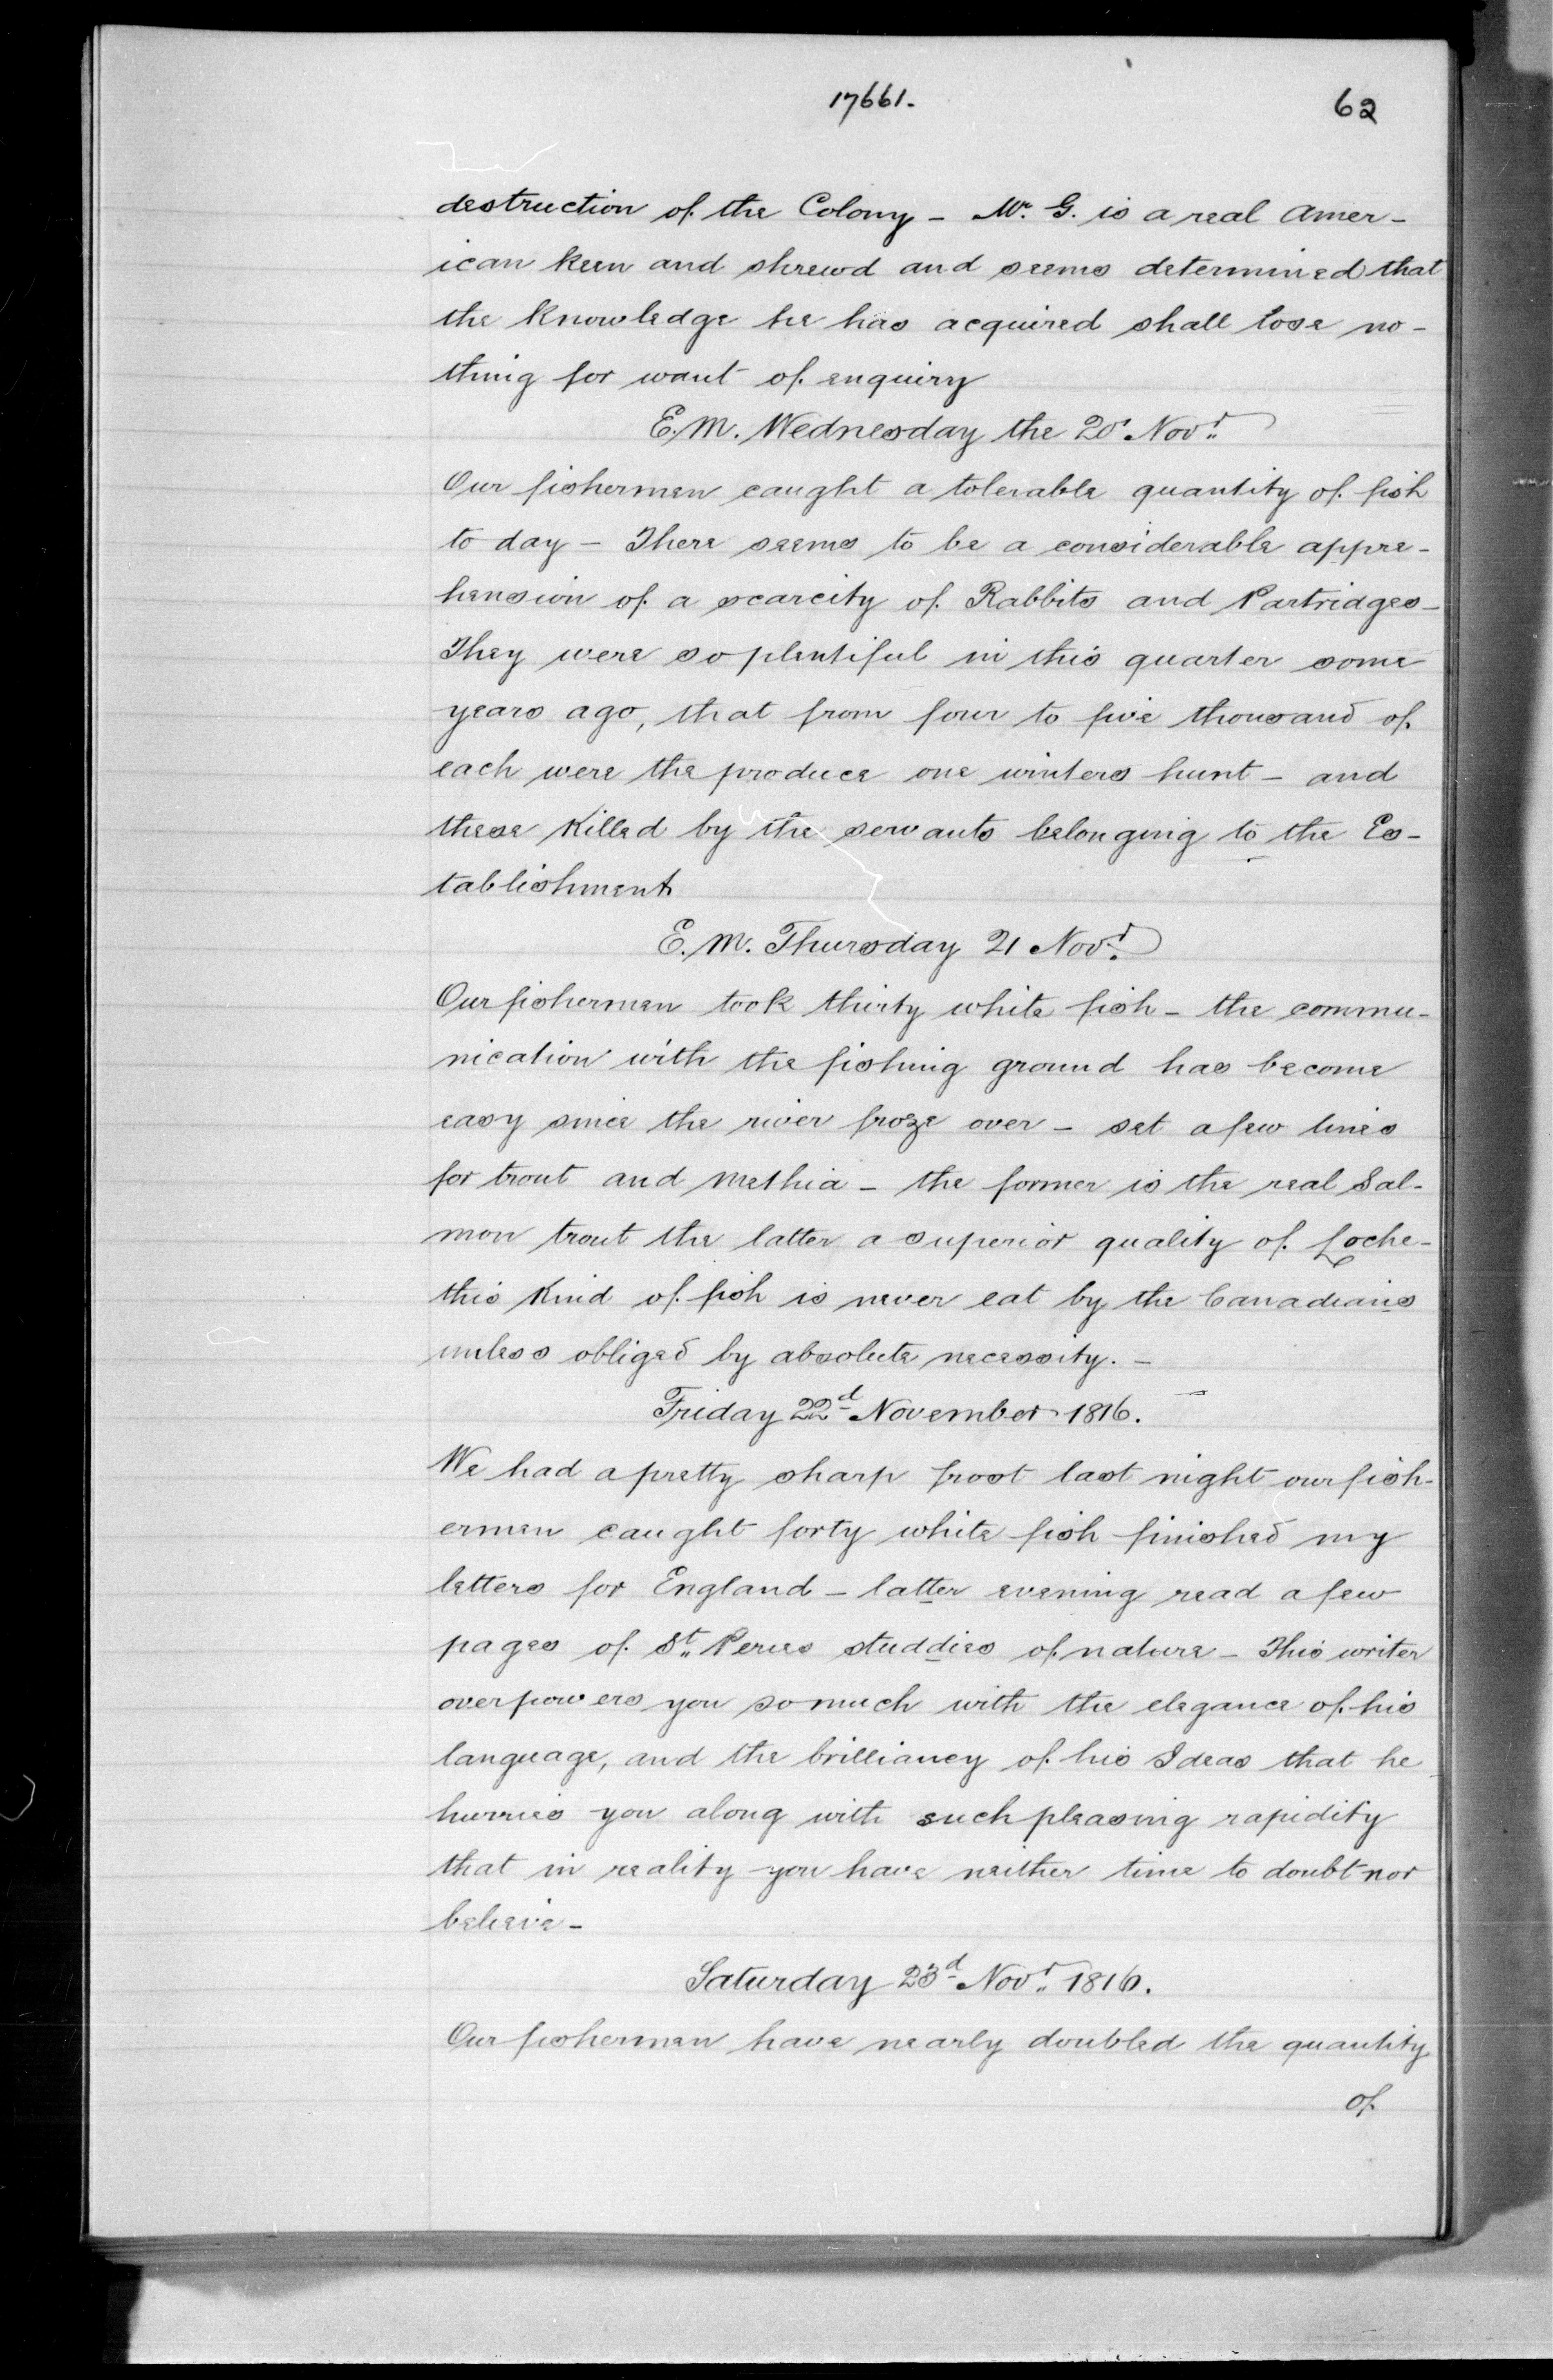 17661.
62
destruction of the Colony - Mr. G. is a real Amer-
ican keen and shrewd and seems determined that
the knowledge he has acquired shall lose no-
thing for want of enquiry
E.M. Wednesday the 20 Novr.
Our fishermen caught a tolerable quantity of fish
to day - There seems to be a considerable appre-
hension of a scarcity of Rabbits and Partridges -
They were so plentiful in this quarter some
years ago, that from four to five thousand of
each were the produce one winters hunt - and
these killed by the servants belonging to the Es-
tablishment
E.M. Thursday 21 Novr.
Our fishermen took thirty white fish - the commu-
nication with the fishing ground has become
easy since the river froze over - set a few lines
for trout and Methia - the former is the real Sal-
mon trout the latter a superior quality of Loche -
this kind of fish is never eat by the Canadians
unless obliged by absolute necessity. -
Friday 22d November 1816.
We had a pretty sharp frost last night our fish-
ermen caught forty white fish finished my
letters for England - latter evening read a few
pages of St. Peries studdies of nature - This writer
overpowers you so much with the elegance of his
language, and the brilliancy of his Ideas that he
hurries you along with such pleasing rapidity
that in reality you have neither time to doubt nor
believe -
Saturday 23d Novr. 1816.
Our fishermen have nearly doubled the quantity
of